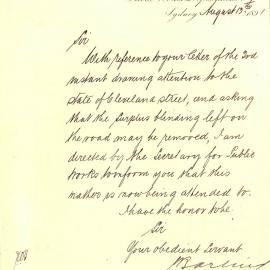 Sydney August 13th 1891
Sir
With reference to your letter of the 3rd
instant drawing attention to the
state of Cleveland street, and asking
that the surplus blinding left on
the road may be removed, I am
directed by the Secretary for Public
Works to inform you that this
matter is now being attended to.
I have the honor to be
Sir
Your obedient Servant